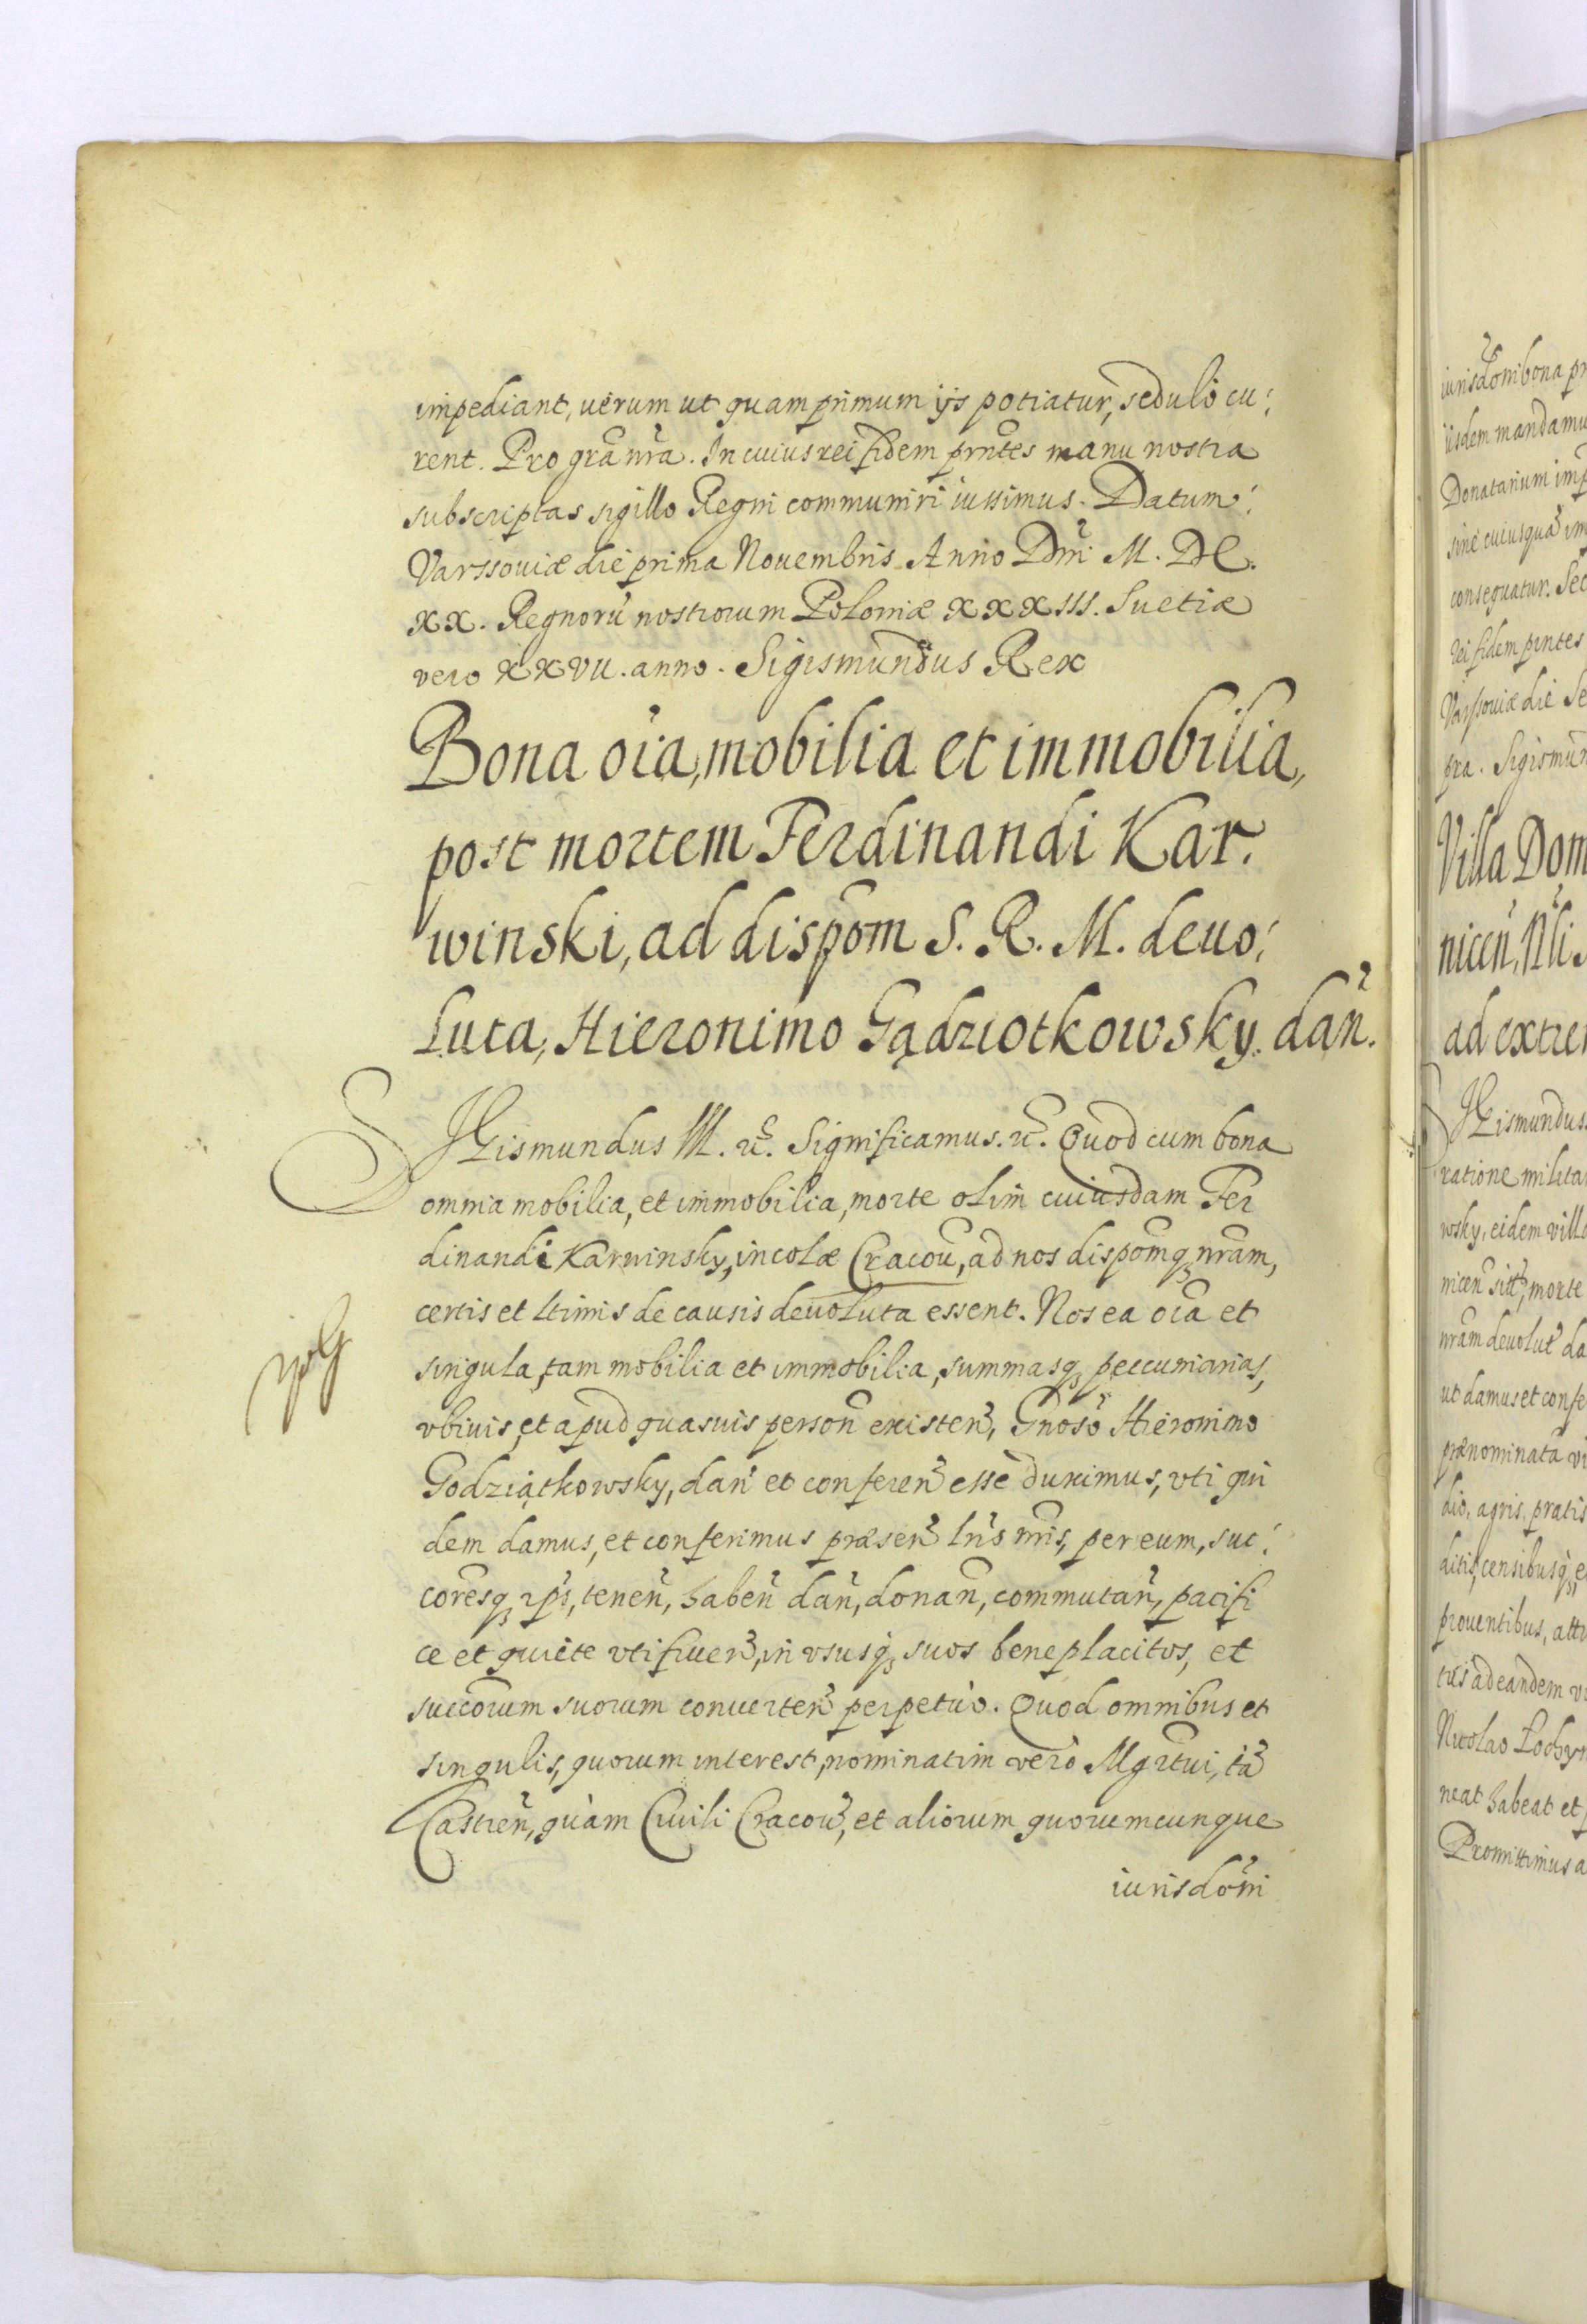 impediant, uerum ut quam primum ijs potiatur, sedulò cu:
rent. Pro grã nrã. In cuius rei fidem prñtes manu nostra
subscriptas sigillo Regni communiri iussimus. Datum:
Varssouiæ die prima Nouembris Anno Dñi M. DC.
XX. Regnorũ nostrorum Poloniæ XXXIII. Suetiæ
vero XXVII. anno. Sigismundus Rex
Bona oĩa, mobilia et immobilia,
post mortem Ferdinandi Kar.
winski, ad dispõm S. R. M. deuo:
luta, Hieronimo Gądziotkowsky dañ.
SIGismundus III. etc̃. Significamus. etc̃. Quod cum bona
omnia mobilia, et immobilia, morte olim cuiusdam Fer
dinandi Karwinsky, incolæ Cracou̅, ad nos dispõmq3 nrãm,
certis et ltimis de causis deuoluta essent. Nos ea oĩa et
singula, tam mobilia et immobilia, summasq3 peccuniarias,
vbiuis, et apud quasuis person̅ existeñ, Gñoso Hieronimo
Godziątkowsky, dañ et confereñ esse duximus, vti qui
dem damus, et conferimus præseñ lrĩs nrĩs, per eum, suc:
cõresq3 ip̃s, teneñ, habeñ dañ, donañ, commutañ, pacifi
ce et quiete vtifrueñ, in vsusq3 suos beneplacitos, et
succõrum suorum conuerteñ perpetuò. Quod omnibus et
singulis, quorum interest, nominatim verò Mgrtui, tã
Castreñ, quàm Ciuili Cracou̅, et aliorum quorumcunque
iurisdõni
iurisdõni bona pr
iisdem mandamu
Donatarium imp
sine cuiusquã im
consequatur. Sec
rei fidem prñtes
Varssouiæ die Se
pra. Sigismun
Villa Dom
niceñ, Nli
ad extre
SIGismundus
ratione milita
wsky, eidem villa
niceñ sitt, morte
nrãm deuolut̃ da
ut damus et confe
prænominatã vi
dio, agris, pratis
ditis, censibusq3, e
prouentibus, atti
tus ad eandem vi
Nicolao Lochyn
neat habeat et p
Promittimus a